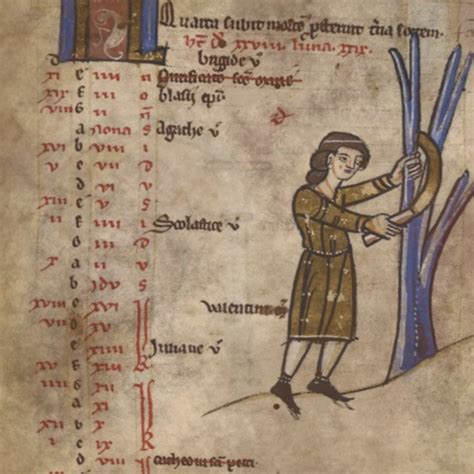 Quarta subit mortē p̄sternit t̄cia fortem.
hēt d̄ xxviii luna xxix.
d brigide v̄
xi e iiii n Purificatio scē marie
xix f iii o blasii ep̄i
viii g ii n
a Nona s Agathe v̄
xvi b viii i
v c vii d
d vi v
xiii e v s
ii f iiii i Scolastice v̄
g iii d
x a ii v
b Idv s
xviii c xvi k Valentini m̄
vii d xv
e xiiii Juliane v̄
xv f xiii k
iiii g xii
a xi
xii b x
k
cathedra sc̄i petri